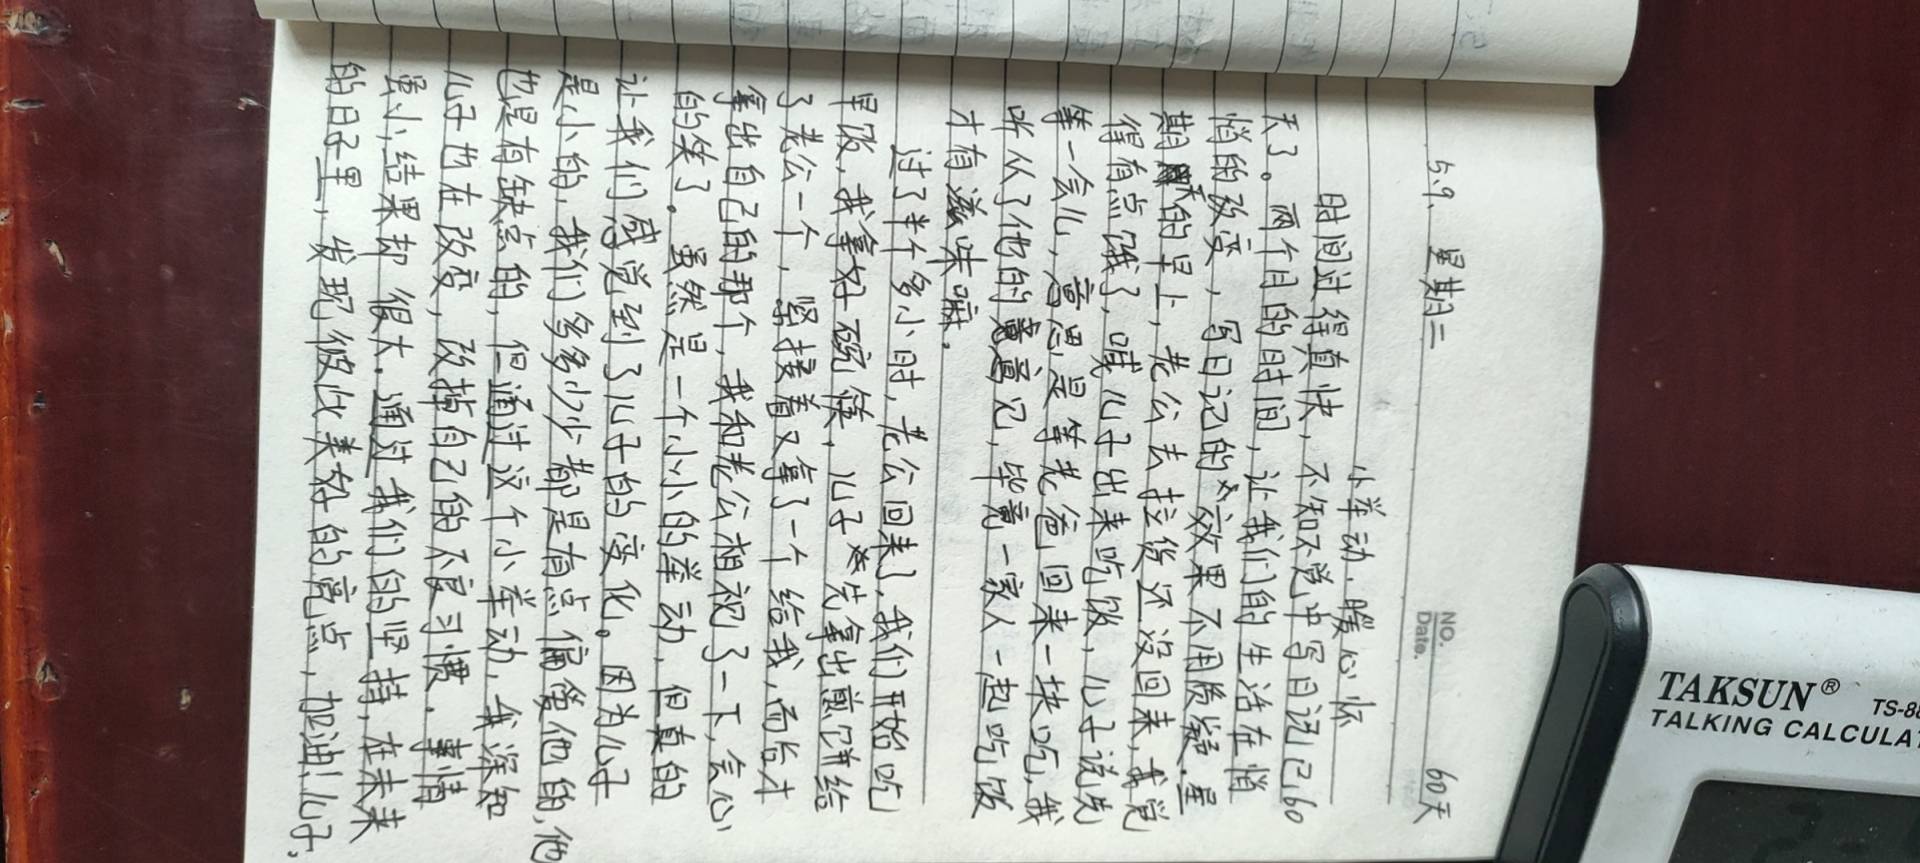 NO.
Date.
5.9. 星期二 60天
小举动.暖心怀
时间过得真快,不知不觉中写日记已60
天了。两个月的时间,让我们的生活在悄
悄的改变,写日记的效果不用质疑.星
期天的早上,老公去拉货还没回来,我觉
得有点饿了,喊儿子出来吃饭,儿子说先
等一会儿,意思是等老爸回来一块吃,我
听从了他的意见,毕竟一家人一起吃饭
才有滋味嘛.
过了半个多小时,老公回来了,我们开始吃
早饭,我拿好碗筷,儿子先拿出煎饼给
了老公一个,紧接着又拿了一个给我,而后才
拿出自己的那个,我和老公相视了一下,会心
的笑了。虽然是一个小小的举动,但真的
让我们感觉到了儿子的变化。因为儿子
是小的,我们多多少少都是有点偏爱他的,他
也是有缺点的,但通过这个小举动,我深知
儿子也在改变,改掉自己的不良习惯.事情
虽小,结果却很大.通过我们的坚持,在未来
的日子里,发现彼此美好的亮点,加油!儿子,
TAKSUN®
TS-88
TALKING CALCULAT